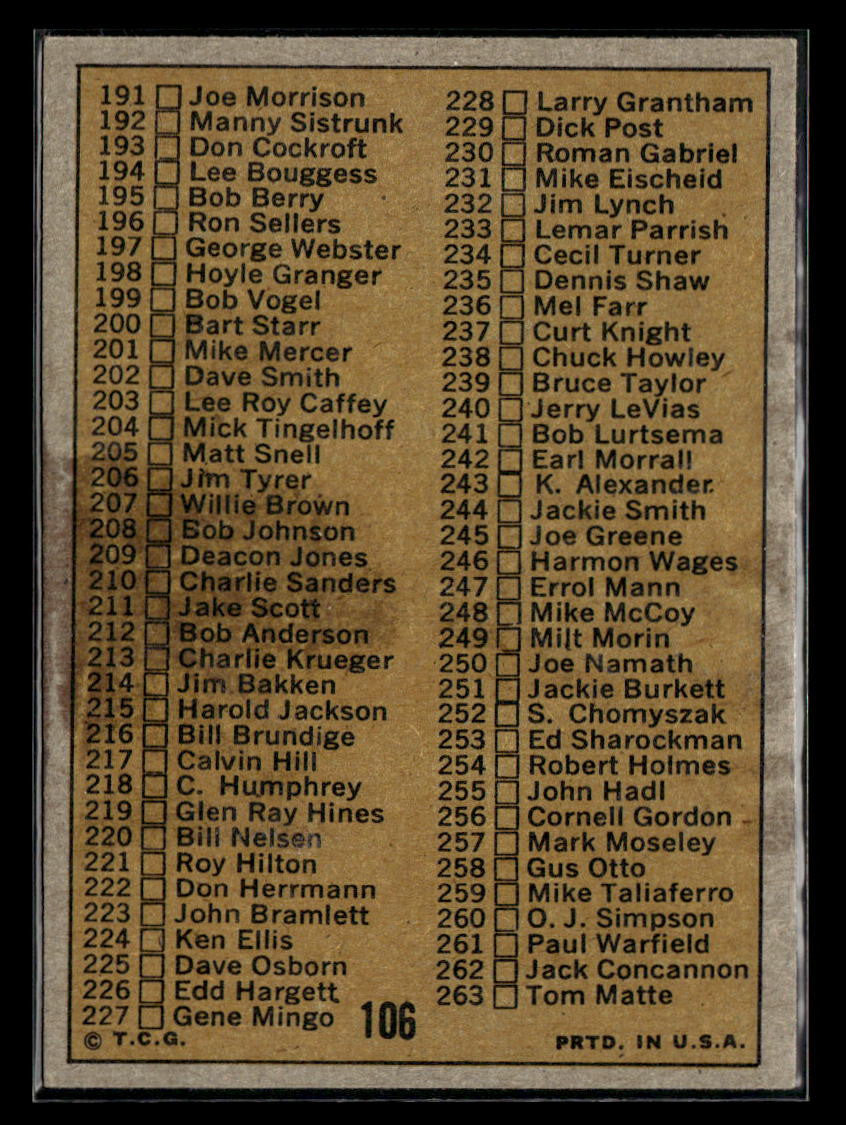 191 Joe Morrison
192 Manny Sistrunk
193 Don Cockroft
194 Lee Bouggess
195 Bob Berry
196 Ron Sellers
197 George Webster
198 Hoyle Granger
199 Bob Vogel
200 Bart Starr
201 Mike Mercer
202 Dave Smith
203 Lee Roy Caffey
204 Mick Tingelhoff
205 Matt Snell
206 Jim Tyrer
207 Willie Brown
208 Bob Johnson
209 Deacon Jones
210 Charlie Sanders
211 Jake Scott
212 Bob Anderson
213 Charlie Krueger
214 Jim Bakken
215 Harold Jackson
216 Bill Brundige
217 Calvin Hill
218 C. Humphrey
219 Glen Ray Hines
220 Bill Nelsen
221 Roy Hilton
222 Don Herrmann
223 John Bramlett
224 Ken Ellis
225 Dave Osborn
226 Edd Hargett
227 Gene Mingo
228 Larry Grantham
229 Dick Post
230 Roman Gabriel
231 Mike Eischeid
232 Jim Lynch
233 Lemar Parrish
234 Cecil Turner
235 Dennis Shaw
236 Mel Farr
237 Curt Knight
238 Chuck Howley
239 Bruce Taylor
240 Jerry LeVias
241 Bob Lurtsema
242 Earl Morrall
243 K. Alexander
244 Jackie Smith
245 Joe Greene
246 Harmon Wages
247 Errol Mann
248 Mike McCoy
249 Milt Morin
250 Joe Namath
251 Jackie Burkett
252 S. Chomyszak
253 Ed Sharockman
254 Robert Holmes
255 John Hadl
256 Cornell Gordon
257 Mark Moseley
258 Gus Otto
259 Mike Taliaferro
260 O. J. Simpson
261 Paul Warfield
262 Jack Concannon
263 Tom Matte
106
© T.C.G.
PRTD. IN U.S.A.